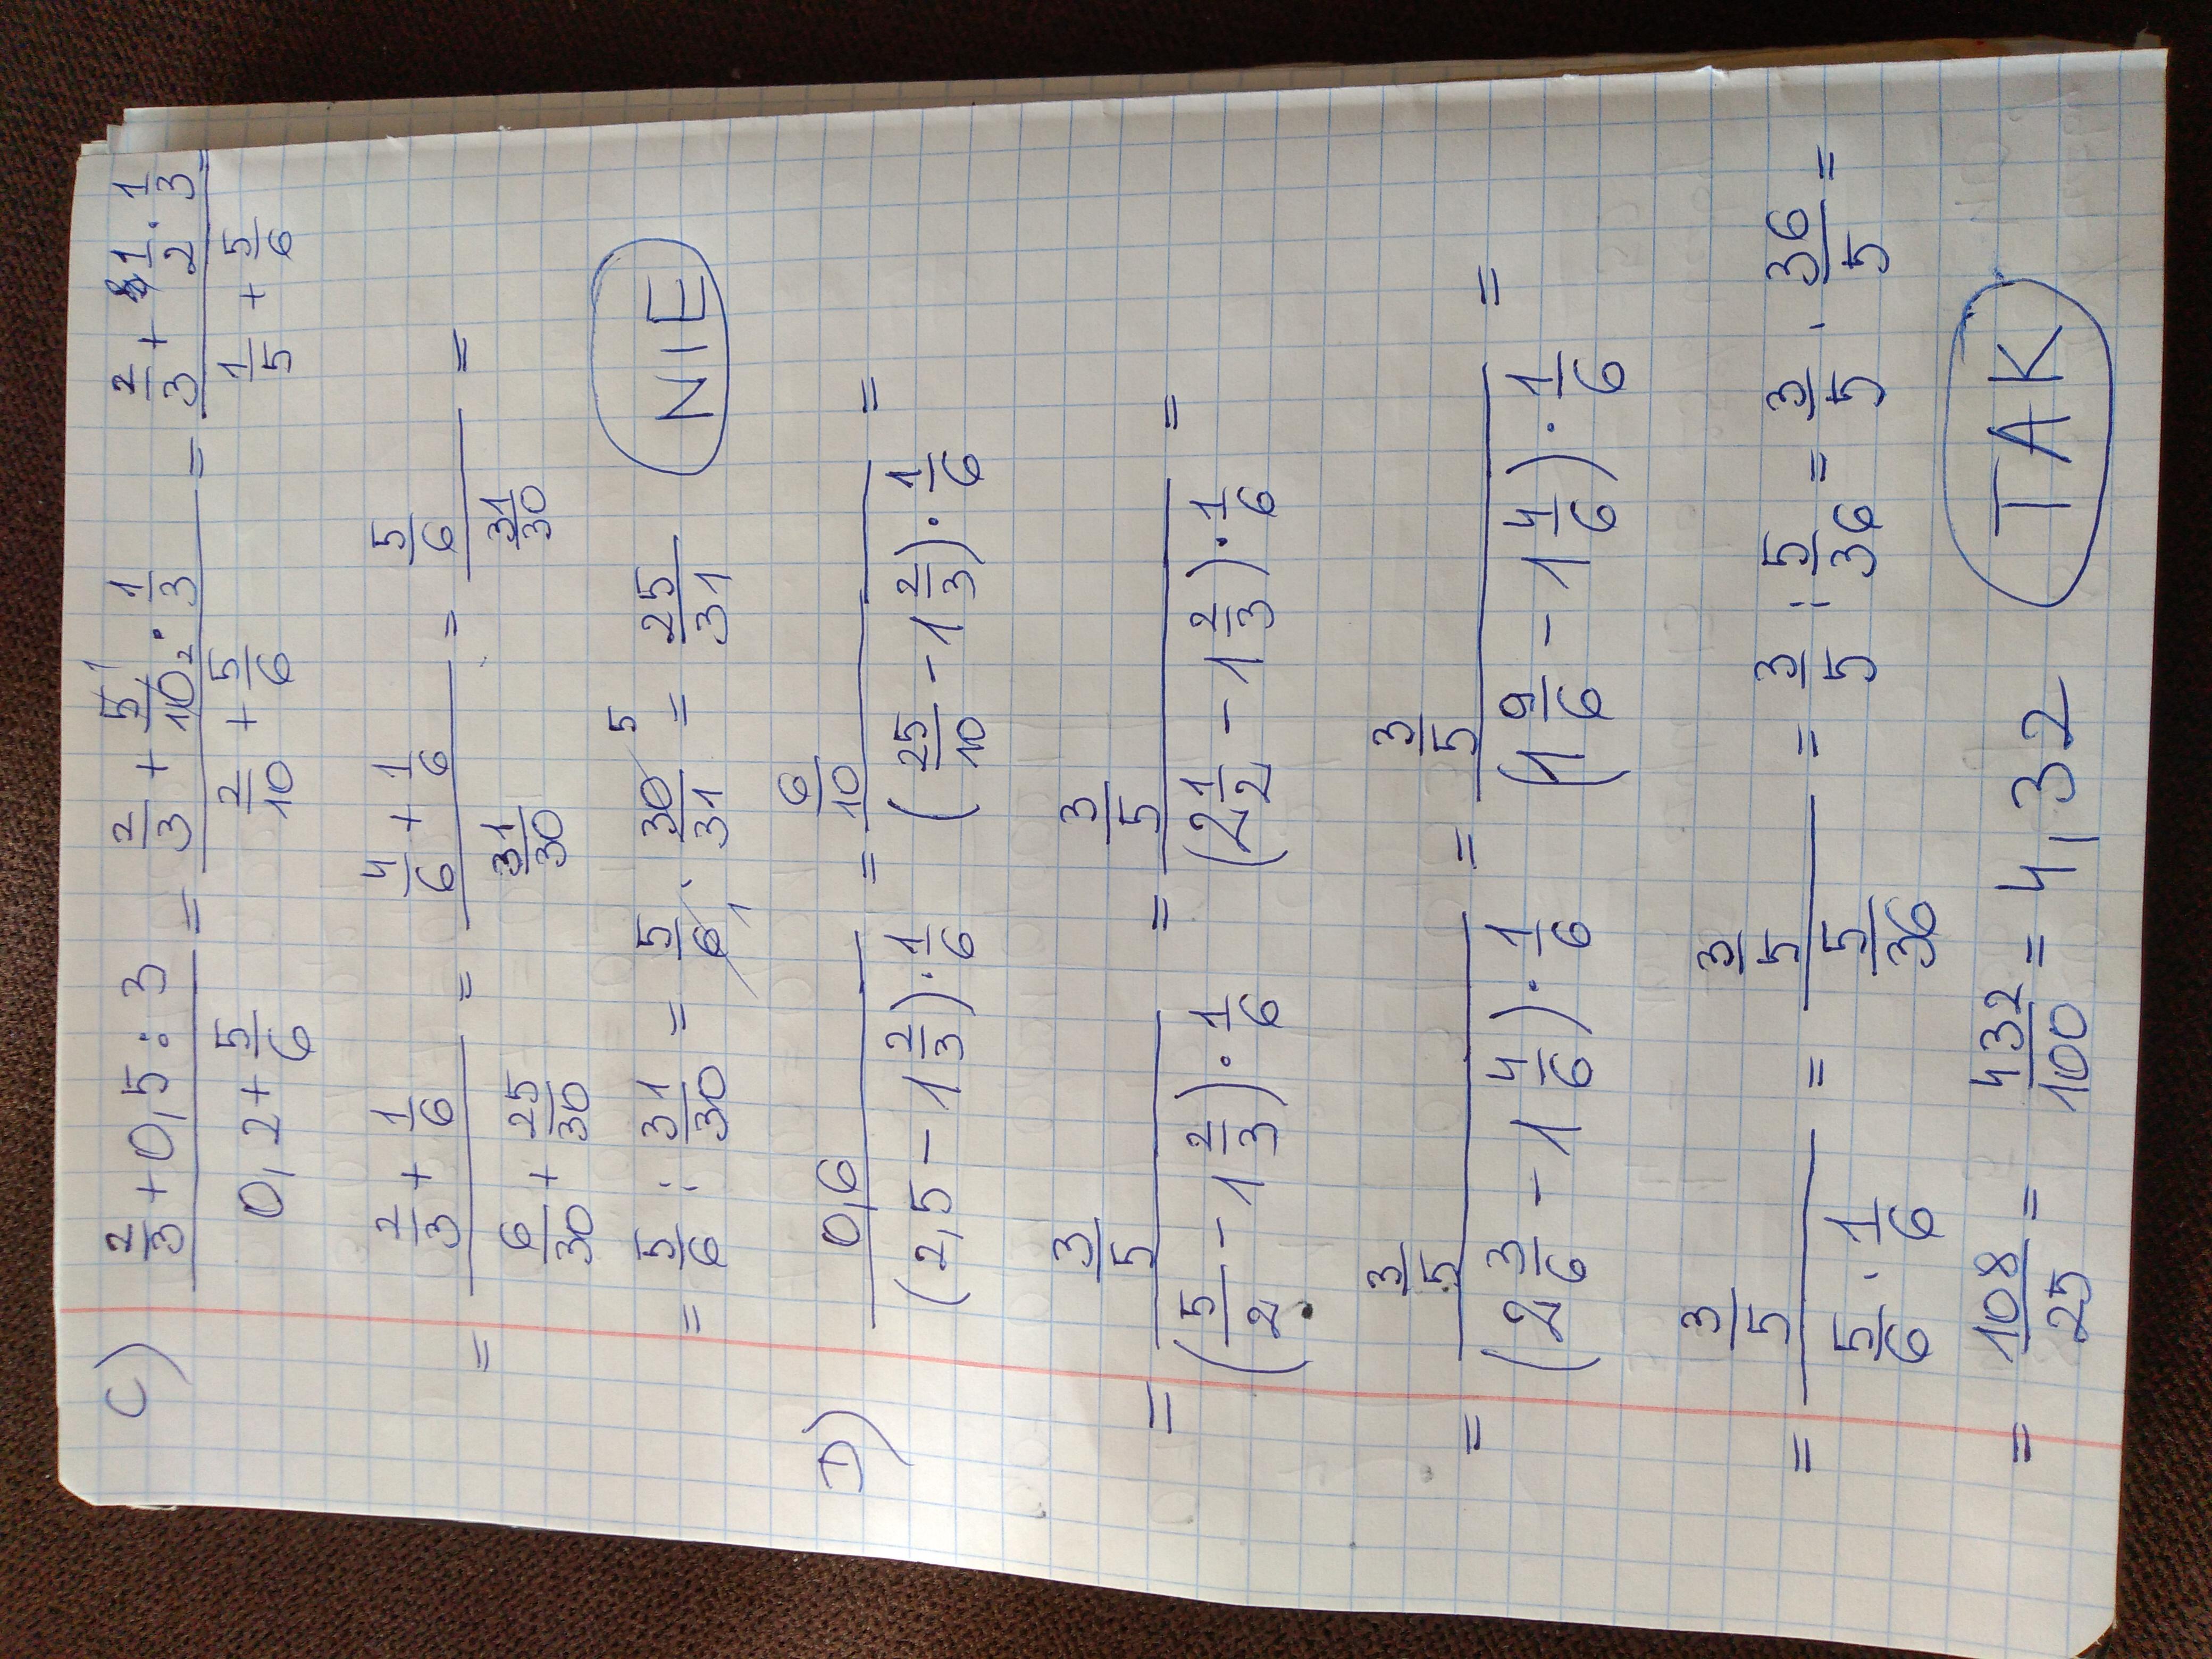 C) (2/3 + 0,5 : 3)/(0,2 + 5/6) = (2/3 + 5/10 · 1/3)/(2/10 + 5/6) = (2/3 + 1/2 · 1/3)/(1/5 + 5/6) =
= (2/3 + 1/6)/(6/30 + 25/30) = (4/6 + 1/6)/(31/30) = (5/6)/(31/30) =
= 5/6 : 31/30 = 5/6 · 30/31 = 25/31 NIE
D) 0,6/((2,5 - 1 2/3) · 1/6) = (6/10)/((25/10 - 1 2/3) · 1/6) =
= (3/5)/((5/2 - 1 2/3) · 1/6) = (3/5)/((2 1/2 - 1 2/3) · 1/6) =
= (3/5)/((2 3/6 - 1 4/6) · 1/6) = (3/5)/((1 9/6 - 1 4/6) · 1/6) =
= (3/5)/(5/6 · 1/6) = (3/5)/(5/36) = 3/5 : 5/36 = 3/5 · 36/5 =
= 108/25 = 432/100 = 4,32 TAK